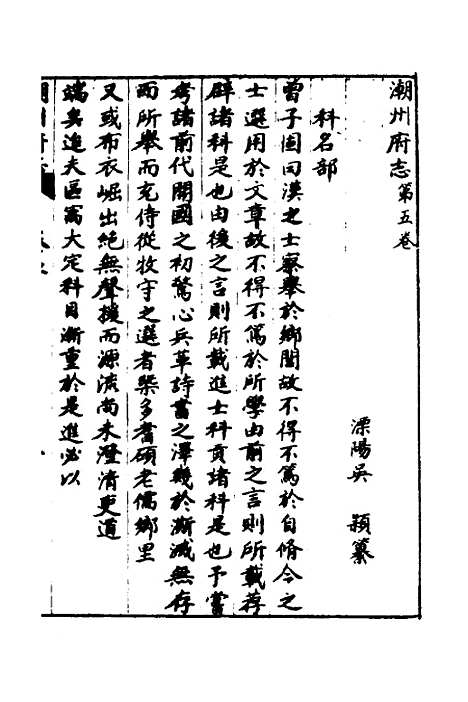 潮州府志第五卷
溧陽吳 頴纂
科名部
曾子固曰漢之士察舉於鄉閭故不得不篤於自脩今之
士選用於文章故不得不篤於所學由前之言則所載荐
辟諸科是也由後之言則所載進士科貢諸科是也予嘗
考諸前代開國之初驚心兵革詩書之澤幾於漸滅無存
而所舉而充侍從牧守之選者槩多耆碩老儒鄉里
又或布衣崛出絕無聲援而源流尚未澄清更道
端矣迨夫區寓大定科目漸重於是進必以